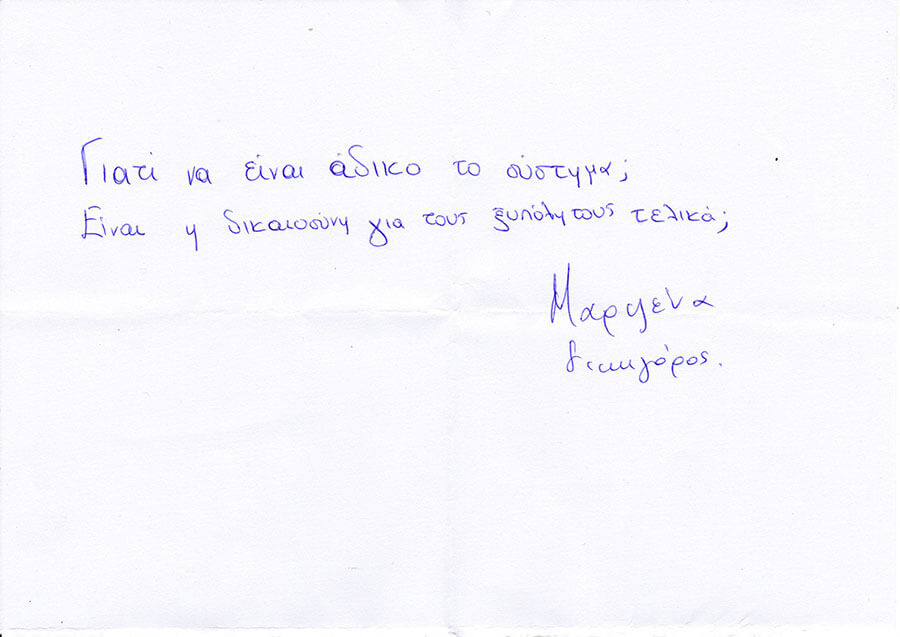 Γιατί να είναι άδικο το σύστημα;
Είναι η δικαιοσύνη για τους ξυπόλητους τελικά;
Μαριλένα
δικηγόρος.